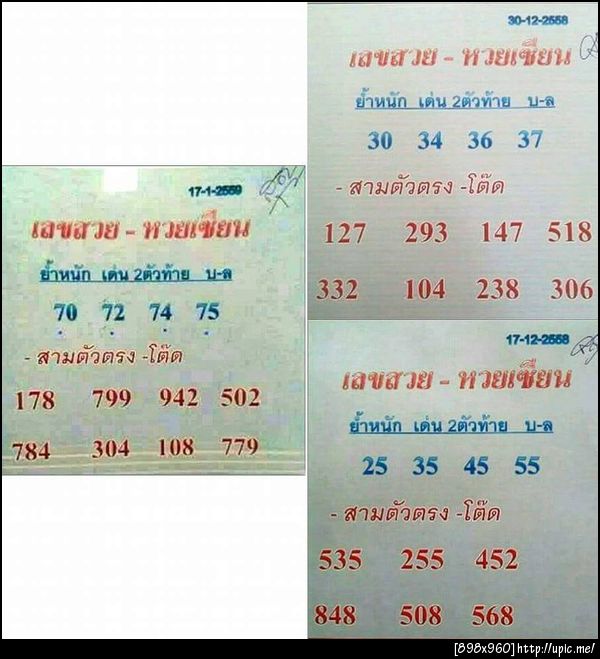 17-1-2559
เลขสวย - หวยเซียน
ย้ำหนัก เด่น 2ตัวท้าย บ-ล
70 72 74 75
- สามตัวตรง -โต๊ด
178 799 942 502
784 304 108 779
30-12-2558
เลขสวย - หวยเซียน
ย้ำหนัก เด่น 2ตัวท้าย บ-ล
30 34 36 37
- สามตัวตรง -โต๊ด
127 293 147 518
332 104 238 306
17-12-2558
เลขสวย - หวยเซียน
ย้ำหนัก เด่น 2ตัวท้าย บ-ล
25 35 45 55
- สามตัวตรง -โต๊ด
535 255 452
848 508 568
[898x960]http://upic.me/